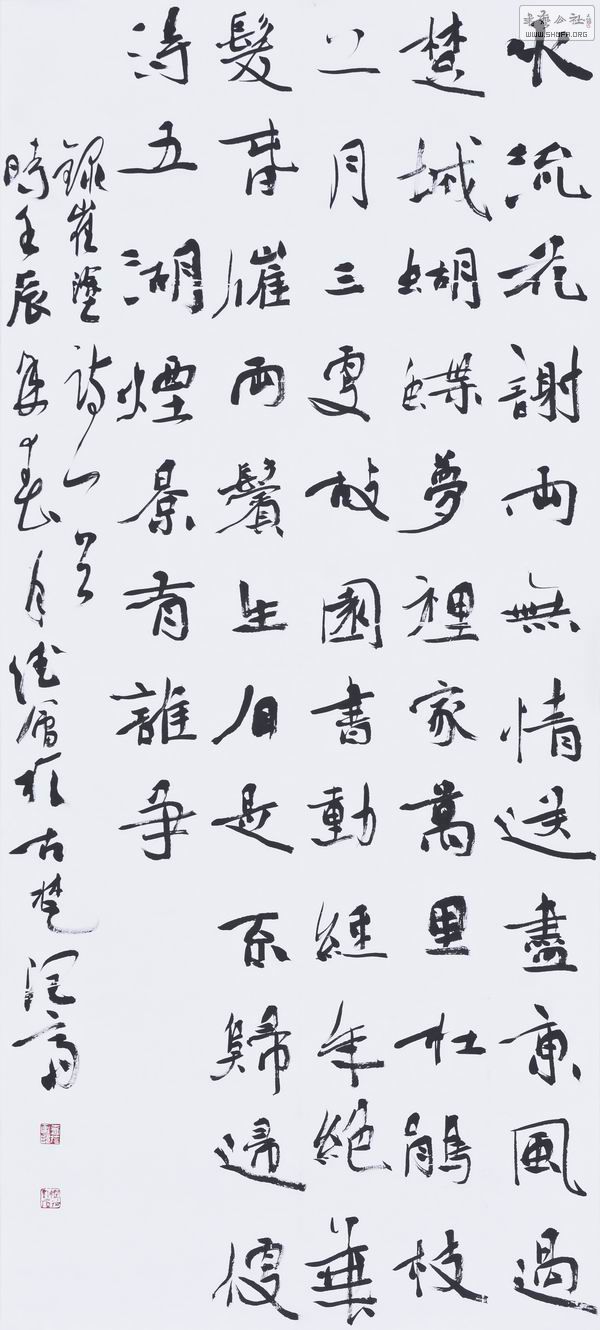 水流花謝兩無情送盡東風過
楚城蝴蝶夢裡家萬里杜鵑枝
上月三更故園書動經年絕華
髮春催兩鬢生自是不歸歸便
得五湖煙景有誰爭
錄崔塗詩一首
時壬辰春月於古楚
WWW.SHUFA.ORG